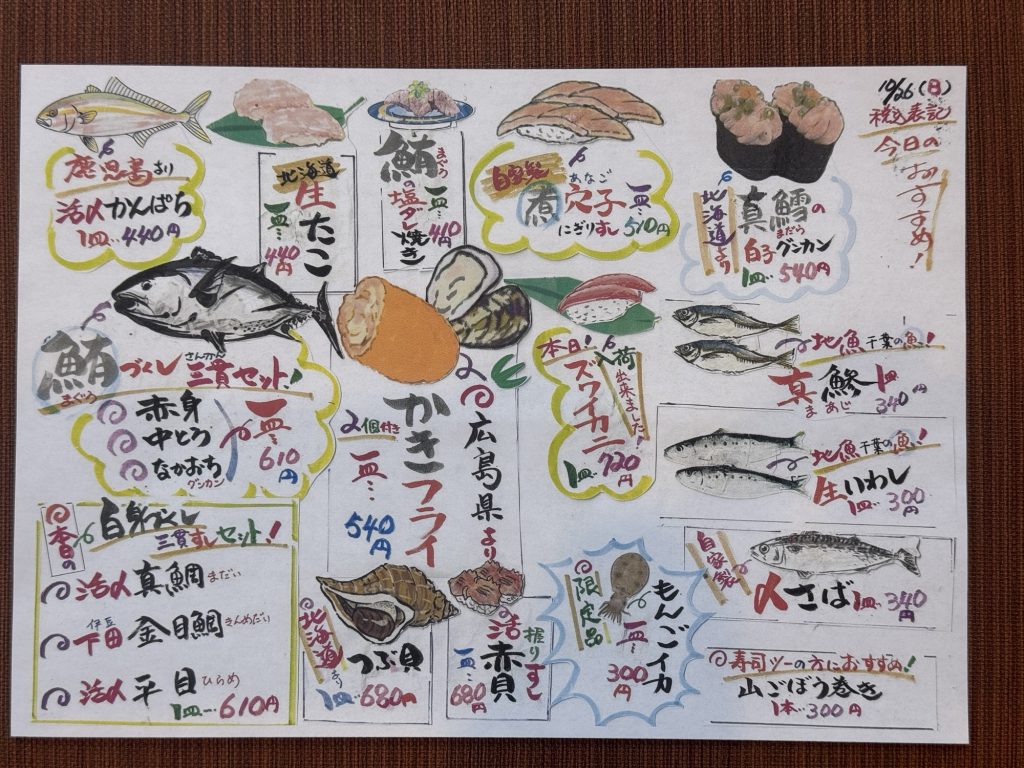 10/26(日)
税込表記
今日の
おすすめ!
鹿児島より
活〆かんぱち
1皿…440円
北海道
生たこ
一皿…
440円
鮪の塩ダレ焼き
まぐろ
一皿…
410円
自家製
煮穴子
あなご
にぎりずし
一皿…
510円
北海道より
真鱈の
まだら
白子グンカン
1皿…540円
鮪づくし
まぐろ
三貫セット!
さんかん
赤身
中とろ
なかおち
グンカン
一皿…
610円
広島県より
かきフライ
2個付き
一皿…
540円
本日!入荷出来ました!
ズワイガニ
1皿…720円
地魚千葉の魚!
真鯵
まあじ
1皿
340円
地魚千葉の魚!
生いわし
1皿…300円
自家製
〆さば
1皿…340円
本日の
白身づくし
三貫すしセット!
活〆真鯛まだい
伊豆
下田金目鯛きんめだい
活〆平目ひらめ
1皿…610円
北海道より
つぶ貝
1皿…680円
活赤貝
握りずし
一皿…
680円
限定品
もんごイカ
一皿…
300円
寿司ツーの方におすすめ!
山ごぼう巻き
1本…300円